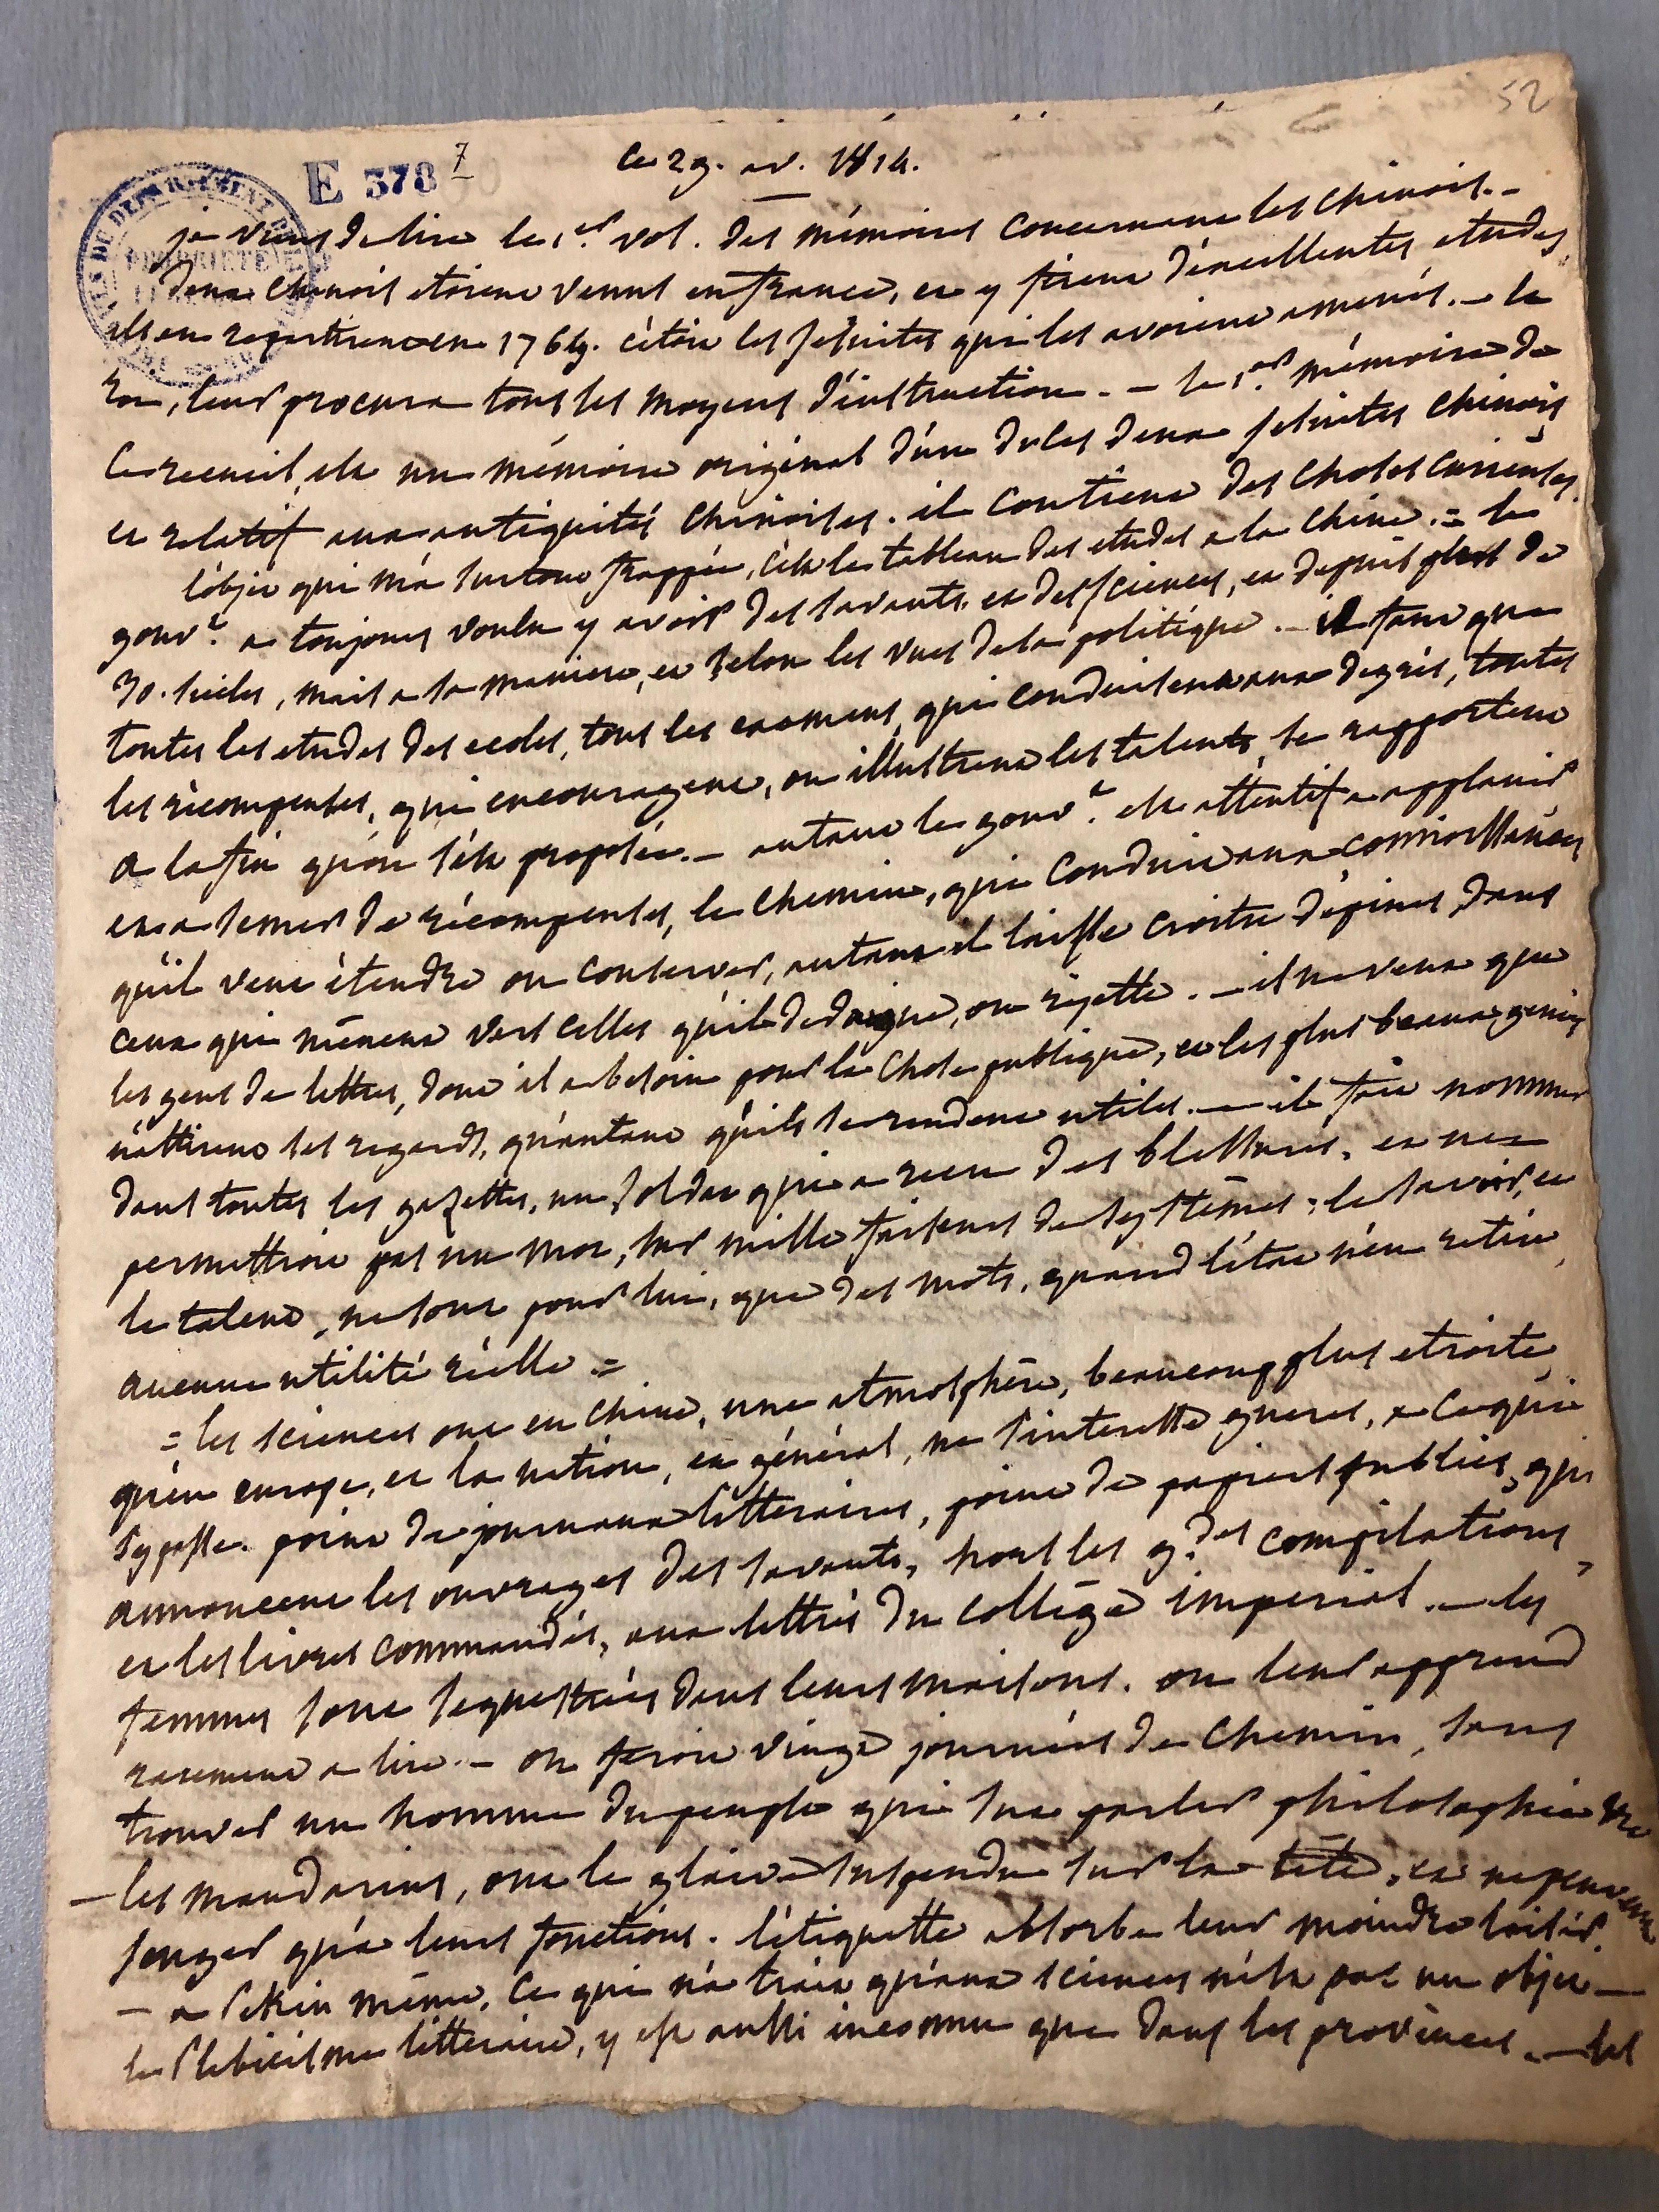 52
E 378 7
ce 29. av. 1814.
je viens de lire le 1.er vol. des mémoires concernant les chinois. —
deux chinois etoient venus en france, et y firent d'excellentes etudes,
ils en repartirent en 1764. c'étoit les jesuites qui les avoient amenés. — le
Roi, leur procura tous les moyens d'instruction. — le 1.er mémoire de
ce recueil, est un mémoire original d'un de ces deux jesuites chinois
et relatif aux antiquités chinoises. il contient des choses curieuses.
l'objet qui m'a surtout frappée, c'est le tableau des etudes a la chine. = le
gouv.t a toujours voulu y avoir des savants et des sciences, et depuis plus de
30. siecles, mais a sa maniere, et selon les vues de sa politique. — il faut que
toutes les etudes des ecoles, tous les examens, qui conduisent aux degrés, toutes
les récompenses, qui encouragent, ou illustrent les talents, se rapportent
a la fin qu'on s'est proposée. — autant le gouv.t est attentif a applanir
et a semer de récompenses, le chemin, qui conduit aux connoissances
qu'il veut étendre ou conserver, autant il laisse croitre d'épines dans
ceux qui mènent vers celles qu'il dedaigne, ou rejette. — il ne veut que
les gens de lettres, dont il a besoin pour la chose publique, et les plus beaux genies
n'attirent ses regards, qu'autant qu'ils se rendent utiles. — il fait nommer
dans toutes les gazettes, un soldat qui a recu des blessures, et ne
permettroit pas un mot, sur mille faiseurs de systêmes; le savoir, et
le talent, ne sont pour lui, que des mots, quand l'état n'en retire
aucune utilité réelle =
= les sciences ont en chine, une atmosphère, beaucoup plus etroite
qu'en europe, et la nation, en général, ne s'interesse gueres, a ce qui
s'y passe. point de journaux litteraires, point de papiers publics, qui
annoncent les ouvrages des savants, hors les g.des compilations,
et les livres commandés, aux lettrés du collège imperial. — les
femmes sont sequestrées dans leurs maisons. on leur apprend
rarement a lire. — on feroit vingt journées de chemin, sans
trouver un homme du peuple qui sut parler philosophie
— les mandarins, ont le glaive suspendu sur la tête, et ne peuvent
songer qu'a leurs fonctions. l'étiquette absorbe leur moindre loisir.
— a Pekin même, ce qui n'a trait qu'aux sciences n'est pas un objet —
le litteraire, y est aussi inconnu que dans les provinces. — les